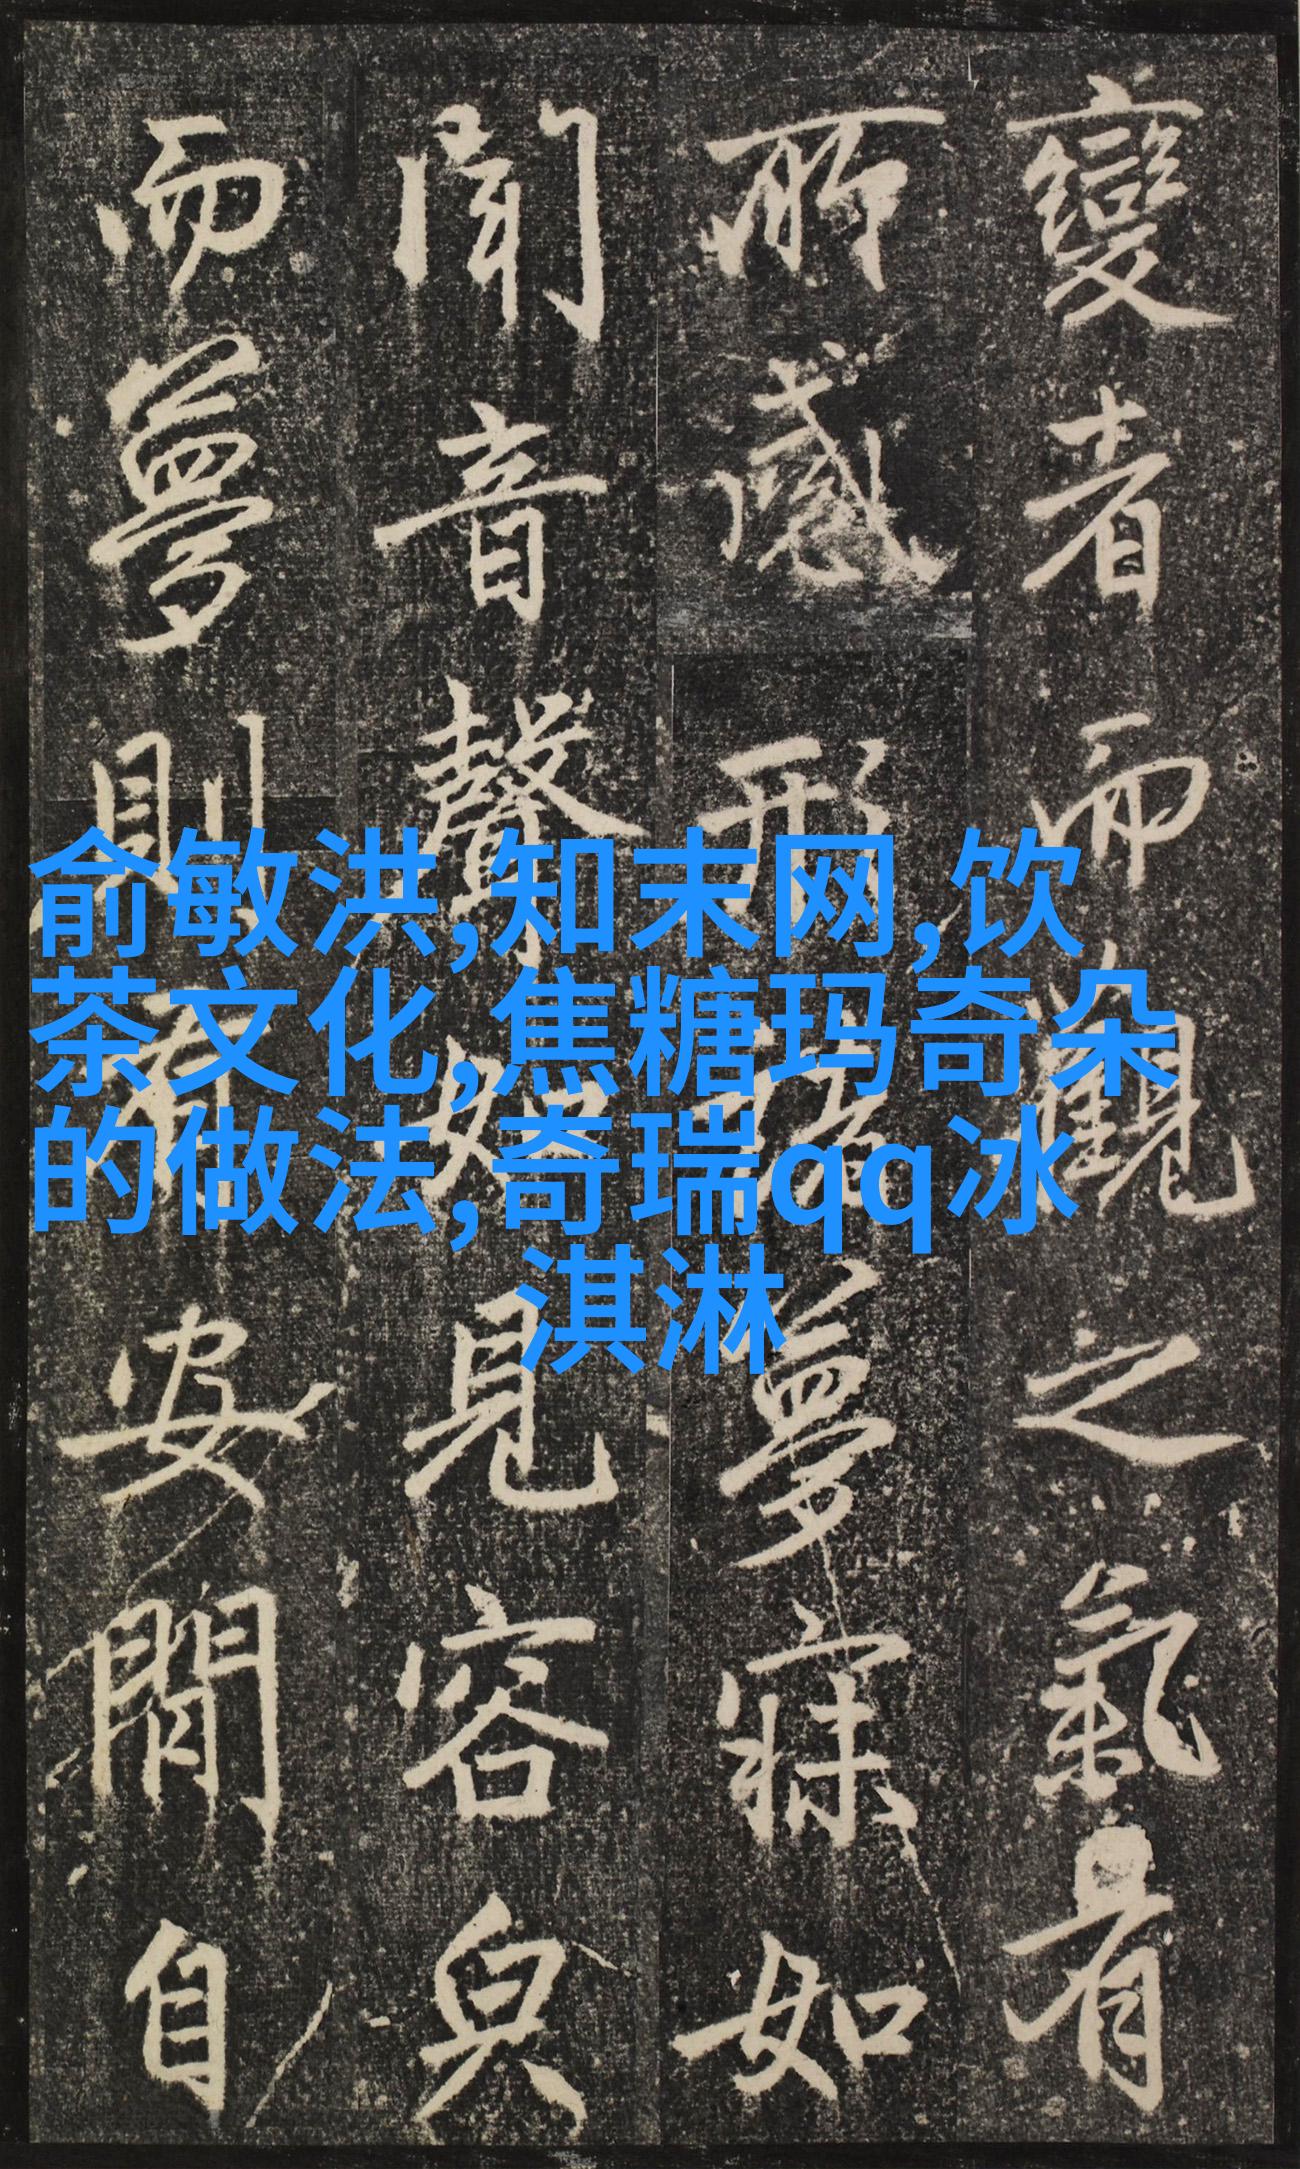 變者而觀之氣有
所感形諸夢寐如
聞音聲如見容皃
而夢則有安閒自
俞敏洪,知末网,饮
茶文化,焦糖玛奇朵
的做法,奇瑞qq冰
淇淋